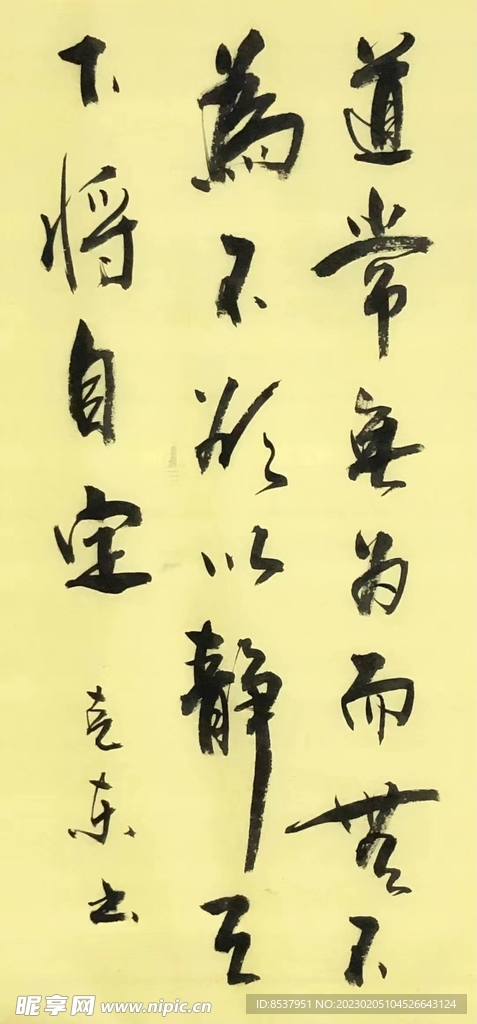 道常無为而無不
為不欲以靜天
下将自定
克东书
昵享网 www.nipic.cn
ID:8537951 NO:20230205104526643124